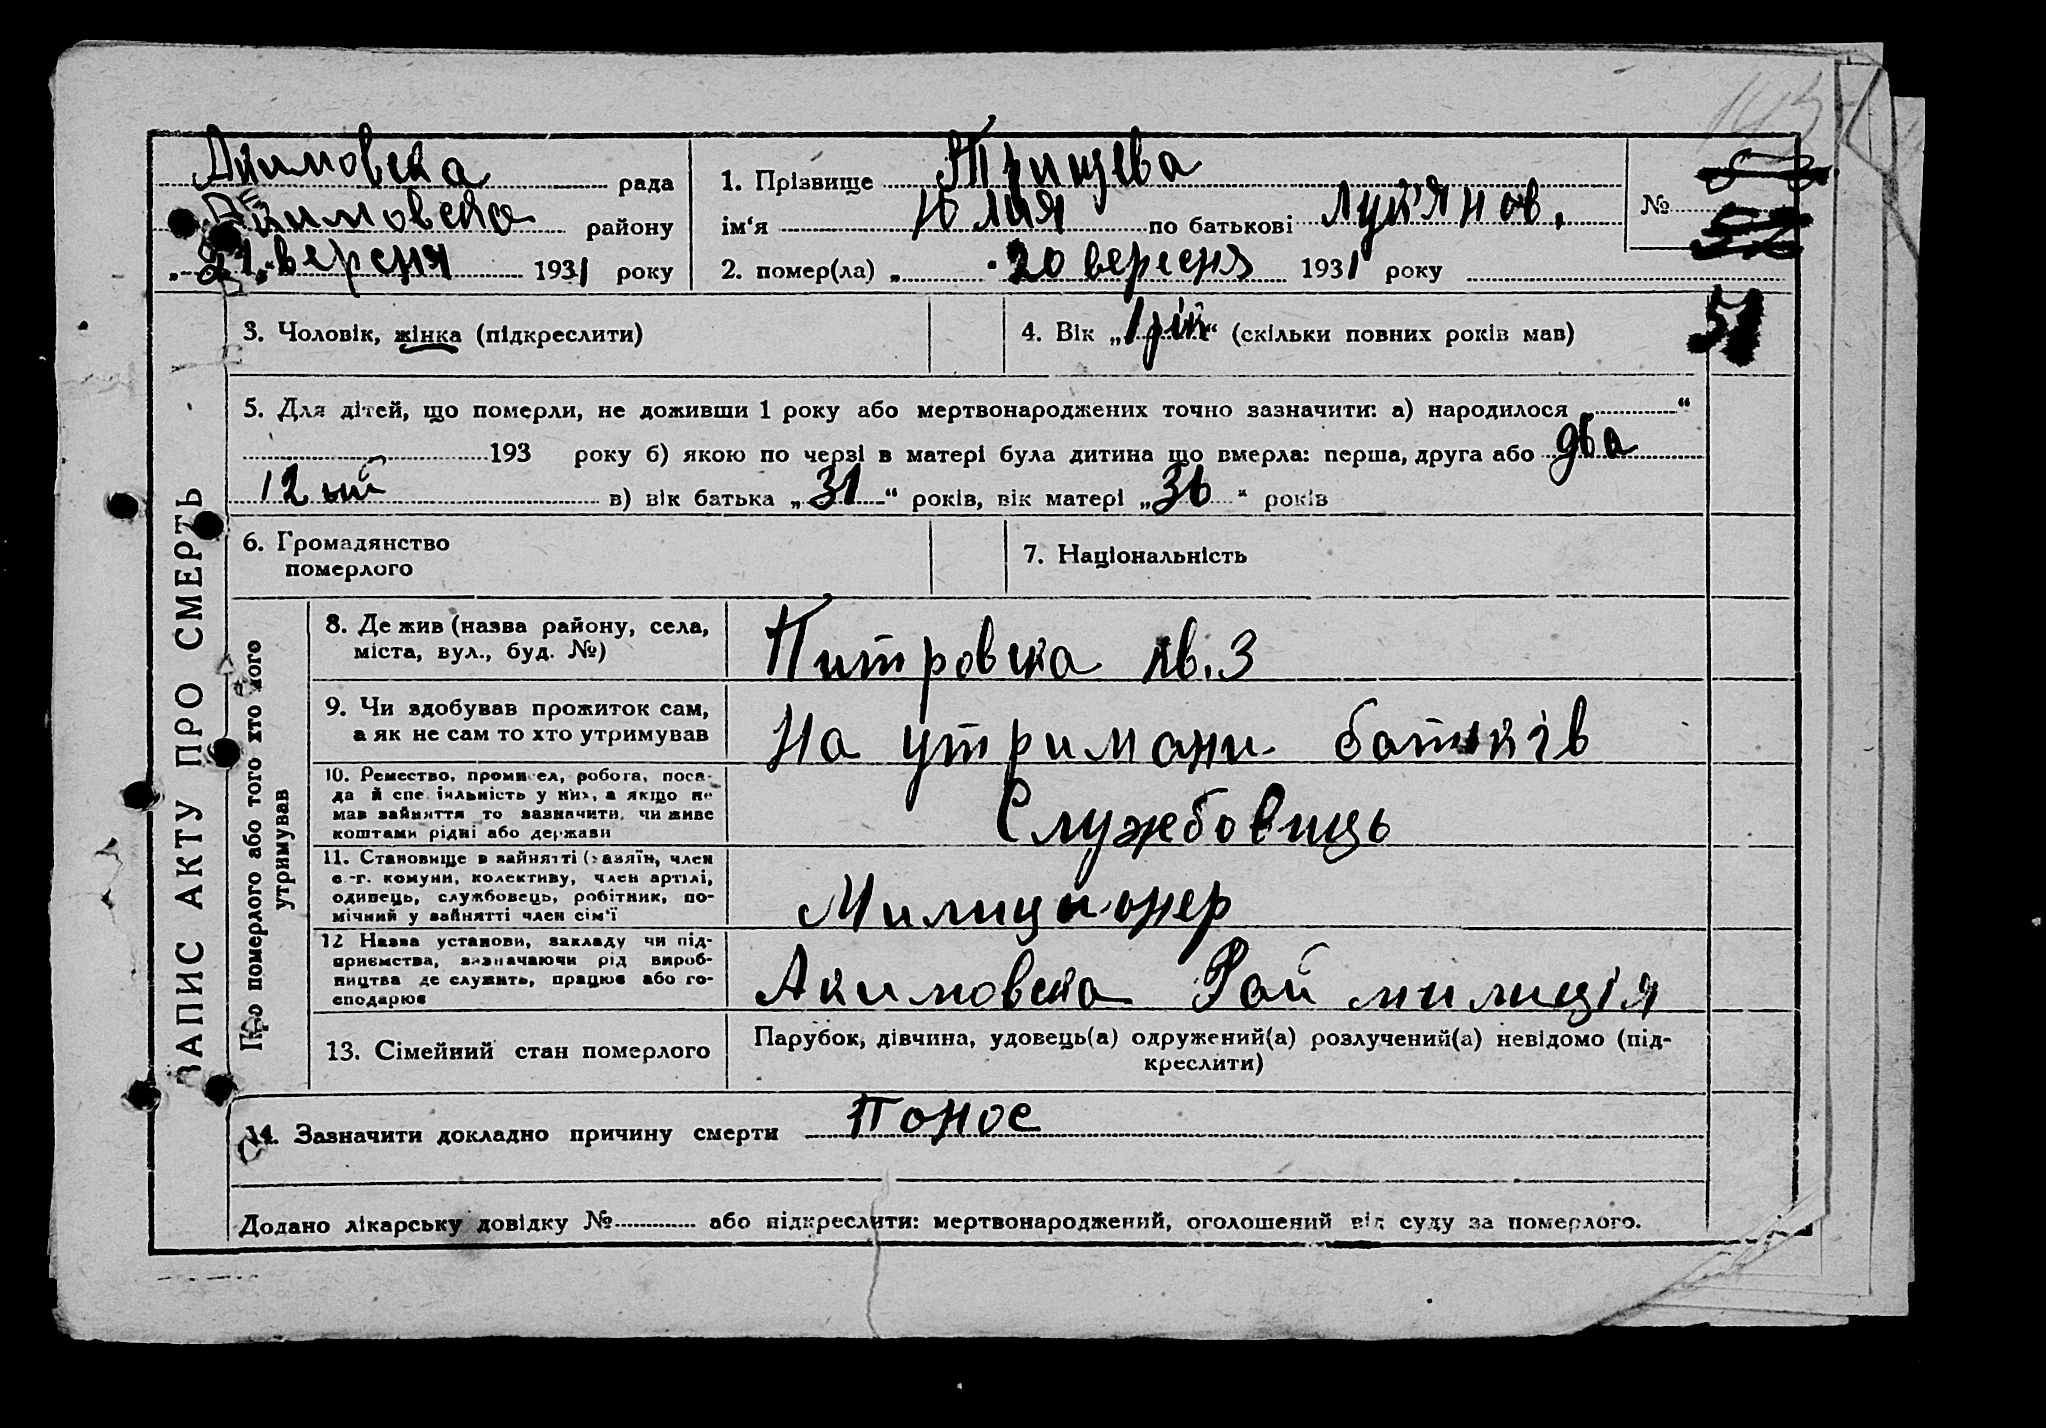 Акимовска рада
Акимовско району
„21“ вересня 1931 року
1. Прізвище Трищева
ім‘я Юлия по батькові Лукъянов.
2. помер(ла) „ 20 вересня 1931 року
№
51
3. Чоловік, жінка (підкреслити)
4. Вік „1 рік“ (скільки повних років мав)
5. Для дітей, що померли, не доживши 1 року або мертвонароджених точно зазначити: а) народилося „ “
193 року б) якою по черзі в матері була дитина що вмерла: перша, друга або два
12 ий в) вік батька „31“ років, вік матері „36“ років
6. Громадянство
померлого
7. Національність
ЗАПИС АКТУ ПРО СМЕРТЬ
Про померлого або того хто його
утримував
8. Де жив (назва району, села,
міста, вул., буд. №)
Питровска кв. 3
9. Чи здобував прожиток сам,
а як не сам то хто утримував
На утримани батьків
10. Ремество, промисел, робота, поса-
да й спеціяльність у них, а якщо не
мав зайняття то зазначити, чи живе
коштами рідні або держави
Службовиць
11. Становище в зайнятті (хазяїн, член
с.-г. комуни, колективу, член артілі,
одинець, службовець, робітник, по-
мічний у зайнятті член сім‘ї
Милиционер
12 Назва установи, закладу чи під-
приємства, зазначаючи рід вироб-
ництва де служить, працює або го-
сподарює
Акимовска Рай милиция
13. Сімейний стан померлого
Парубок, дівчина, удовець(а) одружений(а) розлучений(а) невідомо (під-
креслити)
14. Зазначити докладно причину смерти Понос
Додано лікарську довідку № або підкреслити: мертвонароджений, оголошений від суду за померлого.